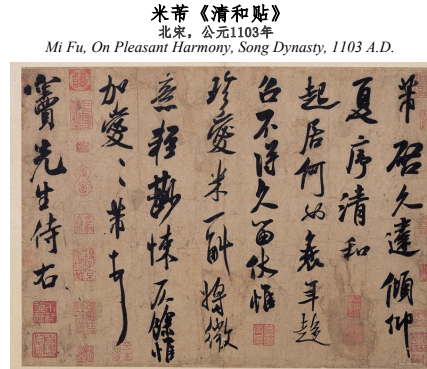 米芾《清和贴》
北宋，公元1103年
Mi Fu, On Pleasant Harmony, Song Dynasty, 1103 A.D.
芾啓久違傾仰
夏序清和
起居何如衰年趨
召不得久留伏惟
珍愛米一斛將微
意輕尟悚仄餘惟
加愛〻芾頓首
竇先生侍右